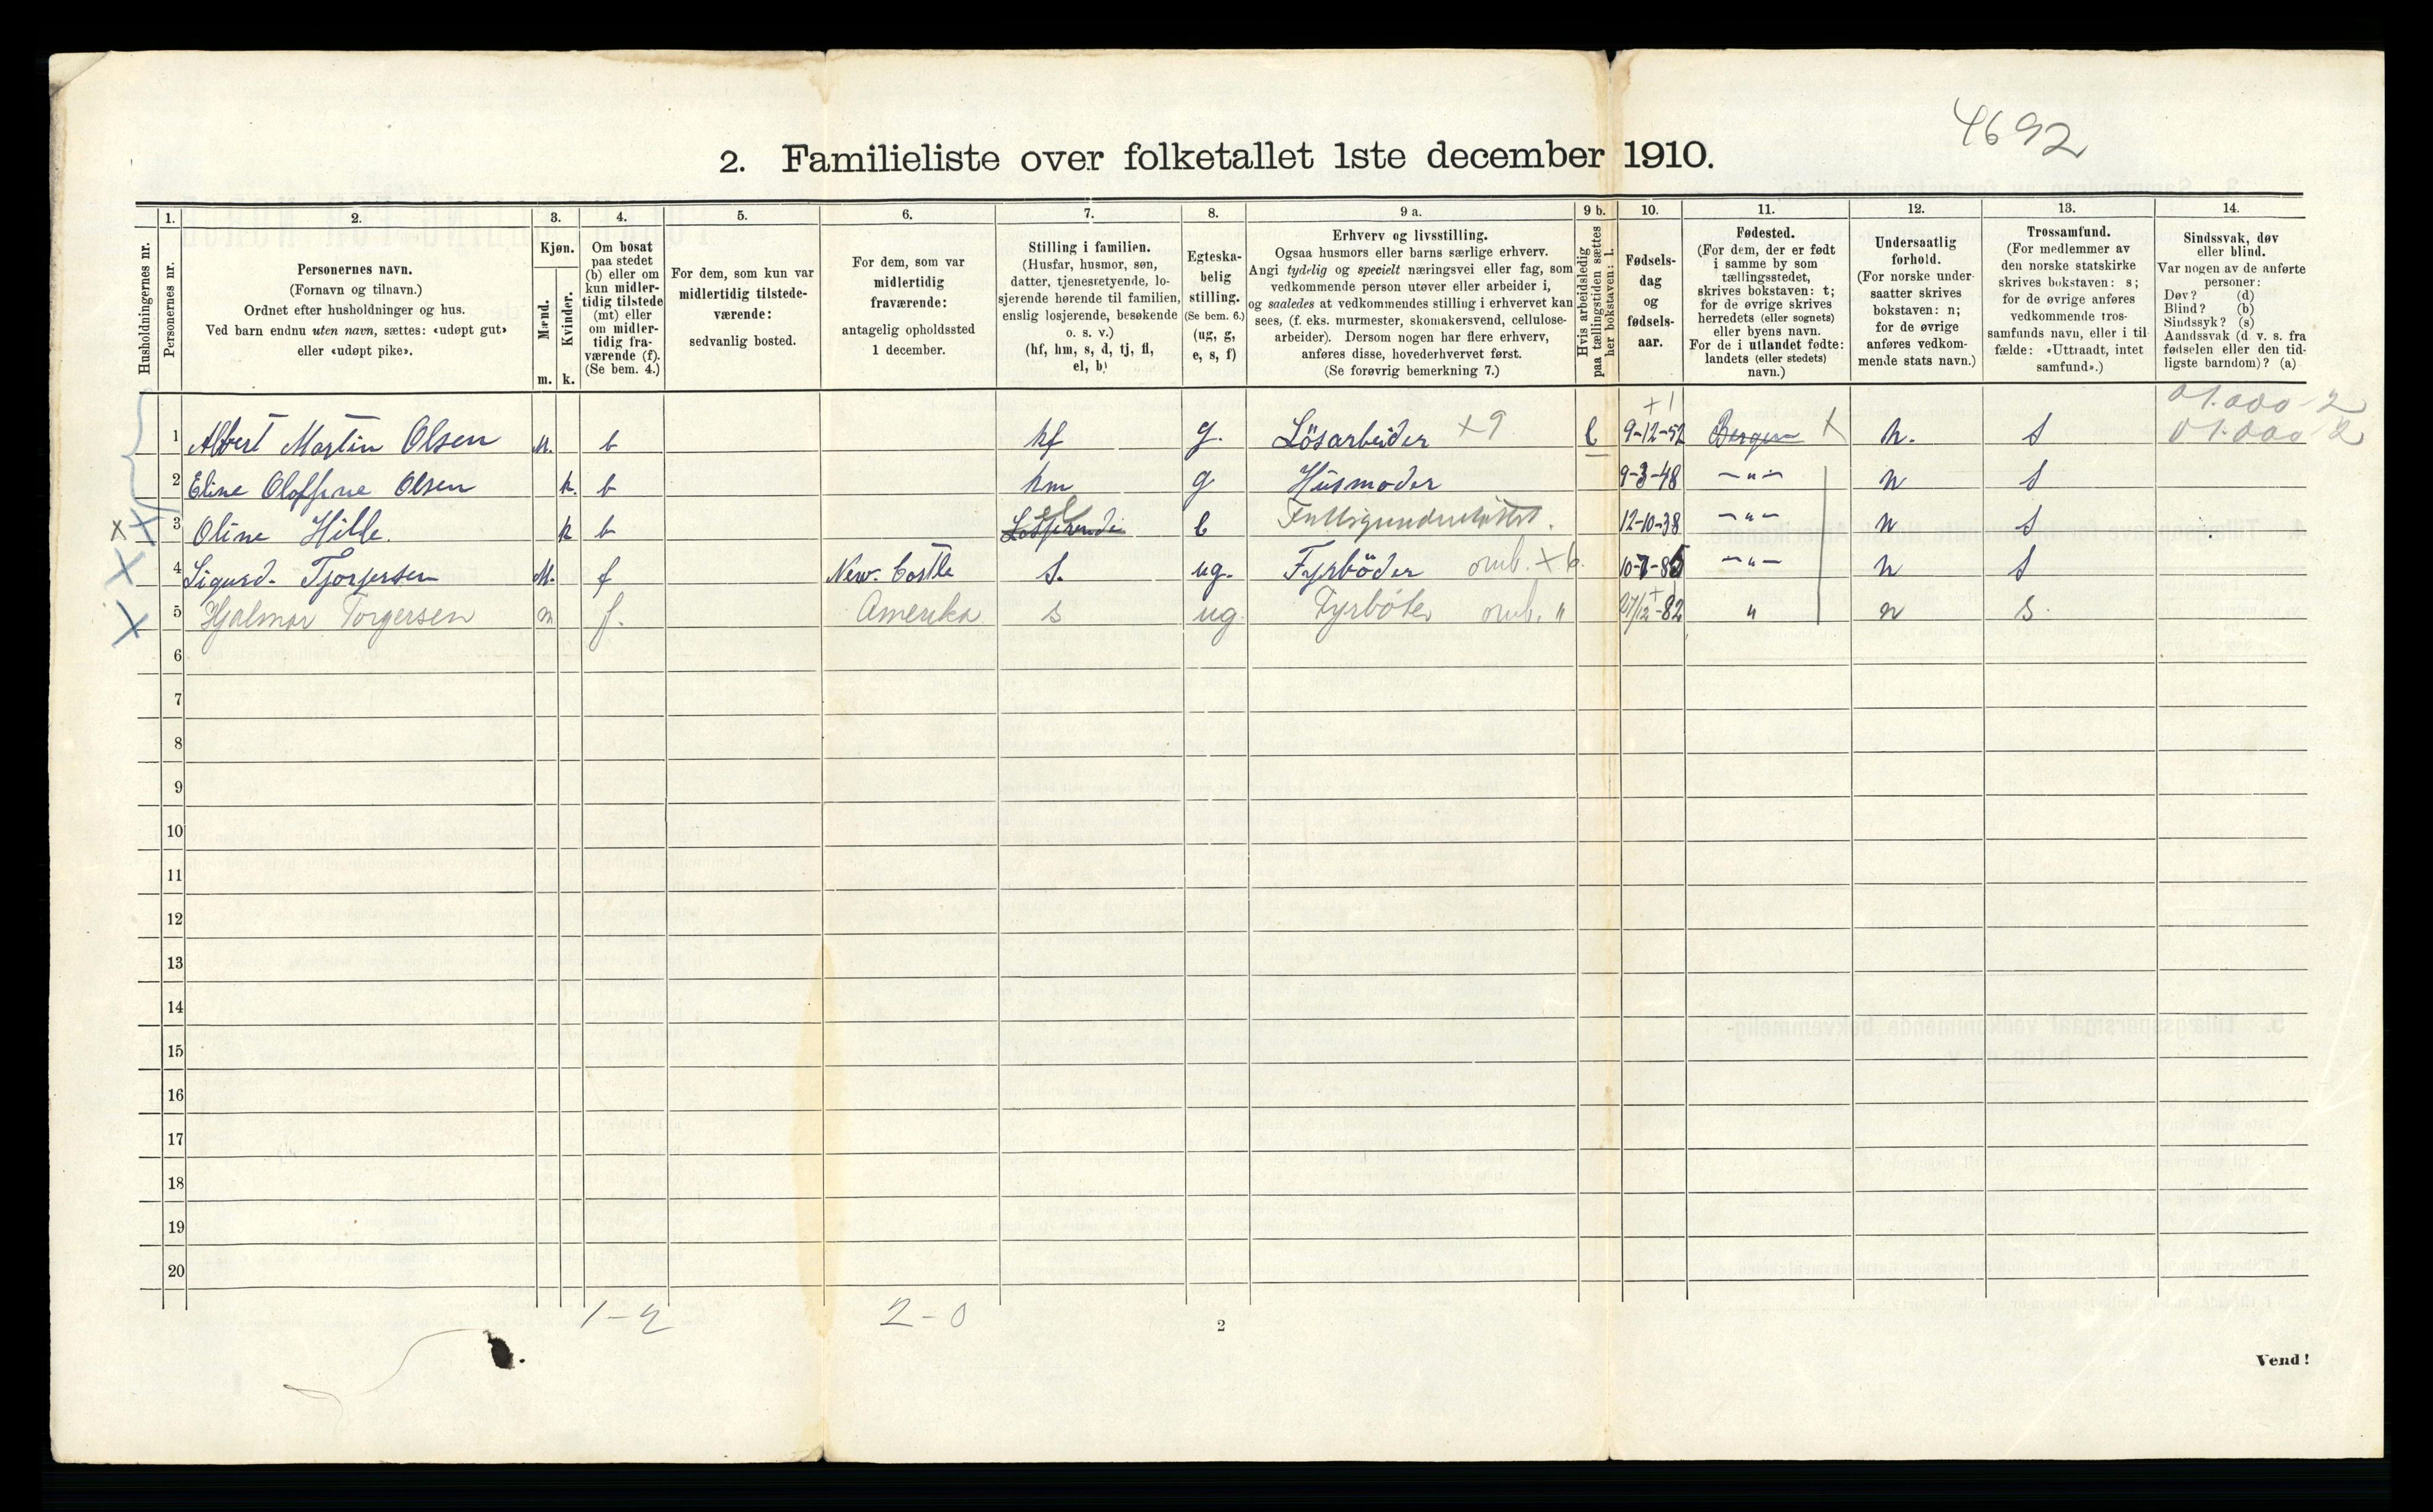 4692
2. Familieliste over folketallet 1ste december 1910.
Husholdningernes nr.
1.
Personernes nr.
2.
Personernes navn.
(Fornavn og tilnavn.)
Ordnet efter husholdninger og hus.
Ved barn endnu uten navn, sættes: «udøpt gut»
eller «udøpt pike».
3.
Kjøn.
Mænd.
Kvinder.
m. k.
4.
Om bosat
paa stedet
(b) eller om
kun midler-
tidig tilstede
(mt) eller
om midler-
tidig fra-
værende (f).
(Se bem. 4.)
5.
For dem, som kun var
midlertidig tilstede-
værende:
sedvanlig bosted.
6.
For dem, som var
midlertidig
fraværende:
antagelig opholdssted
1 december.
7.
Stilling i familien.
(Husfar, husmor, søn,
datter, tjenestetyende, lo-
sjerende hørende til familien,
enslig losjerende, besøkende
o. s. v.)
(hf, hm, s, d, tj, fl,
el, b)
8.
Egteska-
belig
stilling.
(Se bem. 6.)
(ug, g,
e, s, f)
9 a.
Erhverv og livsstilling.
Ogsaa husmors eller barns særlige erhverv.
Angi tydelig og specielt næringsvei eller fag, som
vedkommende person utøver eller arbeider i,
og saaledes at vedkommendes stilling i erhvervet kan
sees, (f. eks. murmester, skomakersvend, cellulose-
arbeider). Dersom nogen har flere erhverv,
anføres disse, hovederhvervet først.
(Se forøvrig bemerkning 7.)
9 b.
Hvis arbeidsledig
paa tællingstiden sættes
her bokstaven: l.
10.
Fødsels-
dag
og
fødsels-
aar.
11.
Fødested.
(For dem, der er født
i samme by som
tællingsstedet,
skrives bokstaven: t;
for de øvrige skrives
herredets (eller sognets)
eller byens navn.
For de i utlandet fødte:
landets (eller stedets)
navn.)
12.
Undersaatlig
forhold.
(For norske under-
saatter skrives
bokstaven: n;
for de øvrige
anføres vedkom-
mende stats navn.)
13.
Trossamfund.
(For medlemmer av
den norske statskirke
skrives bokstaven: s;
for de øvrige anføres
vedkommende tros-
samfunds navn, eller i til-
fælde: «Uttraadt, intet
samfund».)
14.
Sindssvak, døv
eller blind.
Var nogen av de anførte
personer:
Døv? (d)
Blind? (b)
Sindssyk? (s)
Aandssvak (d. v. s. fra
fødselen eller den tid-
ligste barndom)? (a)
01.000-2
1 Albert Martin Olsen m. b hf g. Lösarbeider x9 l 9-12-52 Bergen x n. s 01.000-2
2 Eline Oloffine Olsen k. b hm g Husmoder 9-3-48 -"- n s
x x 3 Oline Hille. k b Losjerende el 12-10-38 -"- n s
x 4 Sigurd. Torjersen M. f New. Castle s. ug. Fyrböder omb. x 6. -"- n s
x 5 Hjalmar Torgersen m f. Amerika s ug. Fyrböter omb. " 27/12-82 " n s.
6
7
8
9
10
11
12
13
14
15
16
17
18
19
20
1-2 2-0
2
Vend!